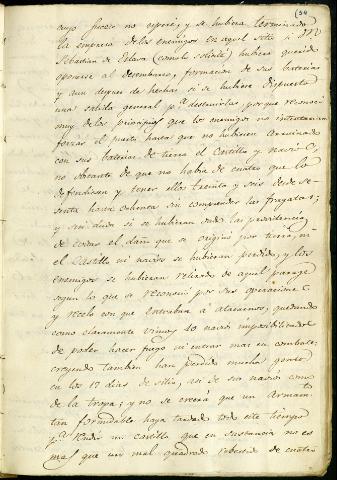 (54
cuyo suceso no esperé, y se hubiera terminado
la empresa de los enemigos en aquel sitio si Dn
Sebastian de Eslava (como lo solicité) hubiera querido
oponerse al desembarco, formacion de sus baterias
y aun despues de hechas si se hubiese dispuesto
una salida general pa destruirlas, porque reconoci
muy de los principios que los enemigos no intentarian
forzar el puerto hasta que no hubiesen arruinado
con sus baterias de tierra el Castillo y navios,
no obstante de que no habia de cuatro que lo
defendiesen y tener ellos treinta y seis desde se-
senta hasta ochenta sin comprender las fragatas;
y sin duda si se hubieran dado las providencias
de evitar el daño que se originó por tierra, ni
el Castillo ni navios se hubieran perdido, y los
enemigos se hubieran retirado de aquel parage
segun lo que se reconoció por sus operaciones
y recelo con que entraban á atacarnos, quedando
como claramente vimos 10 navios imposibilitados
de poder hacer fuego ni entrar mas en combate;
creyendo tambien han perdido mucha gente
en los 17 dias de sitio, asi de sus navios como
de la tropa; y no se creerá que un Armamto
tan formidable haya tardado todo este tiempo
pa rendir un castillo que en sustancia no es
mas que un mal quadrado rebestido de cuatro